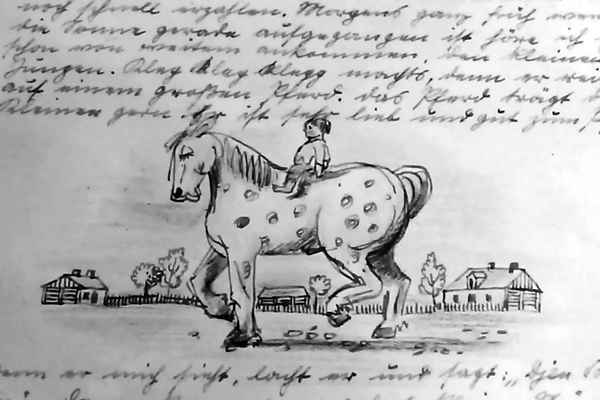 noch schnell erzählen. Morgens ganz früh wenn
die Sonne gerade aufgegangen ist höre ich
schon von weitem ankommen, den kleinen
Jungen. Kleg kleg klegg machts, denn er rei
auf einem großen Pferd. das Pferd trägt d
Kleinen gern. Er ist sehr lieb und gut zum
wenn er mich sieht, lacht er und sagt: „Djen